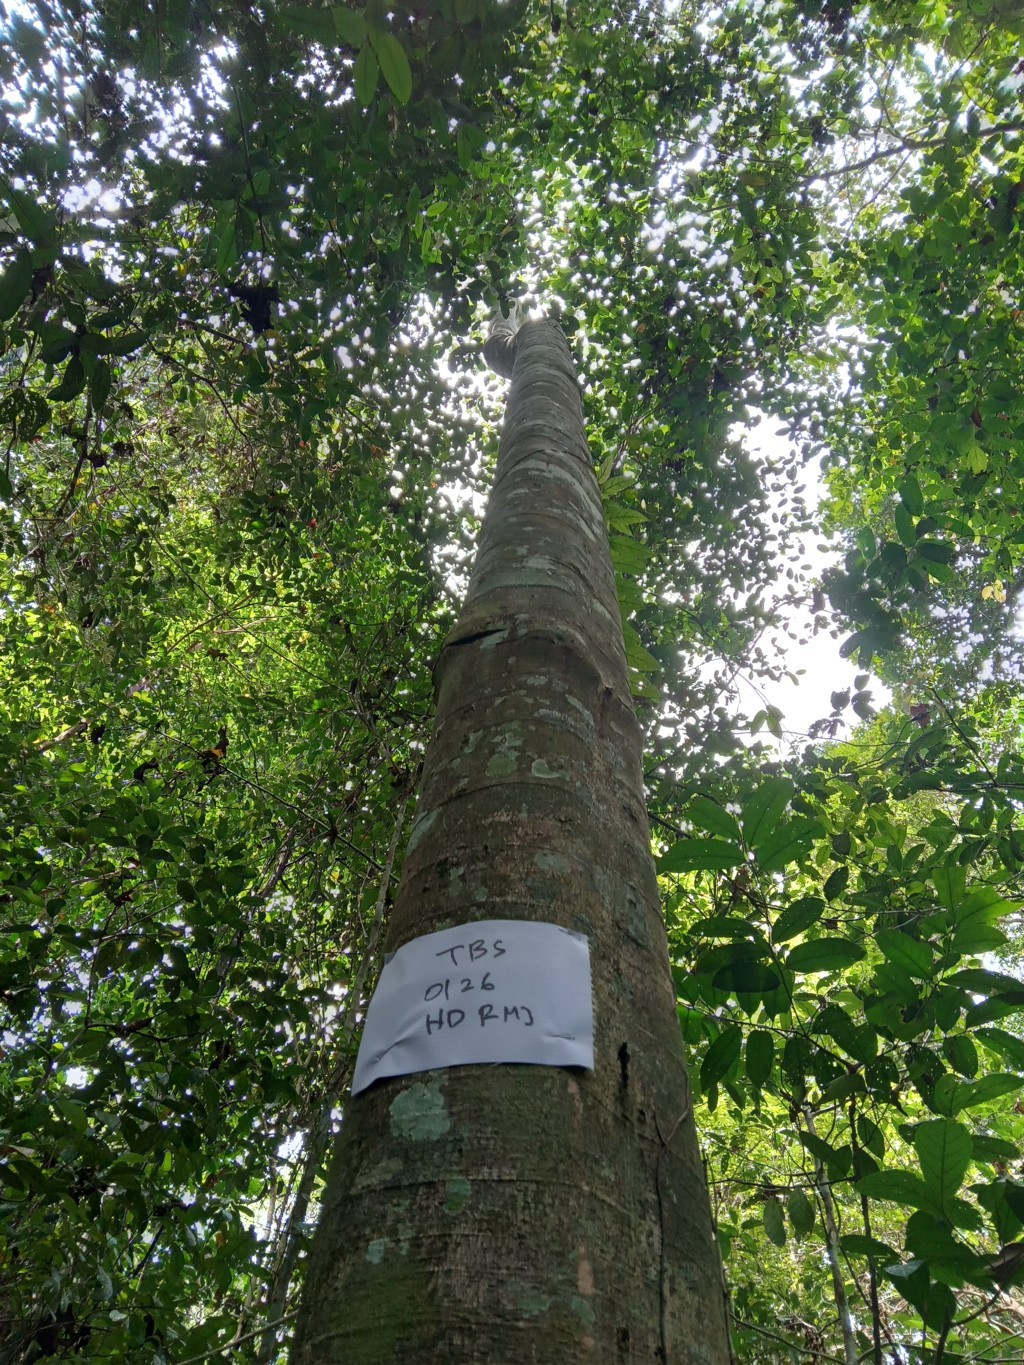 TBS
0126
HD RMJ